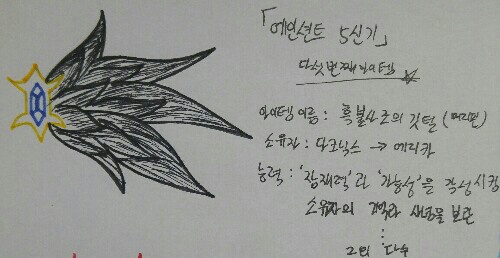 「에인션트 5신기」
다섯번째 아이템 ☆
아이템 이름 : 흑불사조의 깃털 (머리핀)
소유자 : 다크닉스 → 에리카
능력 : '잠재력'과 '가능성'을 각성시킴
소유자의 기억과 생명을 보관
:
그외 다수